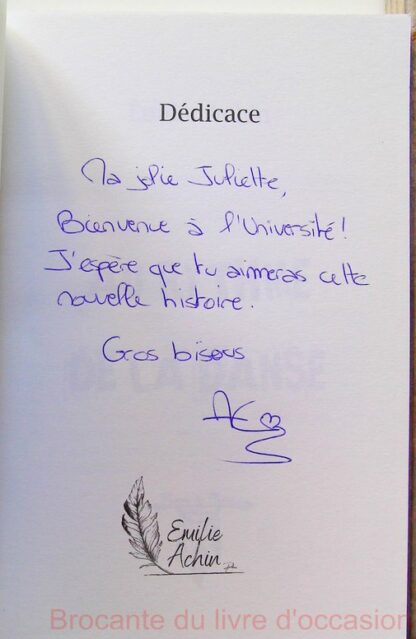 Dédicace
Ma jolie Juliette,
Bienvenue à l'Université!
J'espère que tu aimeras cette
nouvelle histoire.
Gros bisous
AE
Emilie
Achin
Brocante du livre d'occasion